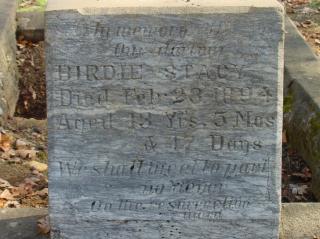 In memory of
BIRDIE STACY
Died Feb. 23 1894
Aged 13 Yrs. 5 Mos
& 17 Days
We shall meet to part
no never
On the resurrection